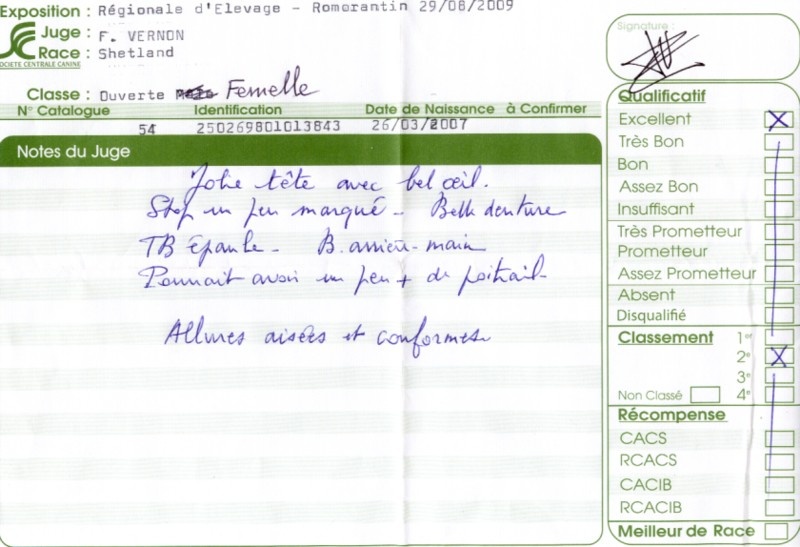 Exposition : Régionale d'Elevage - Romorantin 29/08/2009
Juge : F. VERNON
Race : Shetland
SOCIETE CENTRALE CANINE
Classe : Ouverte Femelle
N° Catalogue Identification Date de Naissance à Confirmer
54 250269801013843 26/03/2007
Notes du Juge
Jolie tête avec bel œil.
Stop un peu marqué - Belle denture
TB Épaule - B. arrière-main
Pourrait avoir un peu + de poitrail
Allures aisées et conformes
Signature :
Qualificatif
Excellent X
Très Bon
Bon
Assez Bon
Insuffisant
Très Prometteur
Prometteur
Assez Prometteur
Absent
Disqualifié
Classement 1er
2e X
3e
Non Classé 4e
Récompense
CACS
RCACS
CACIB
RCACIB
Meilleur de Race